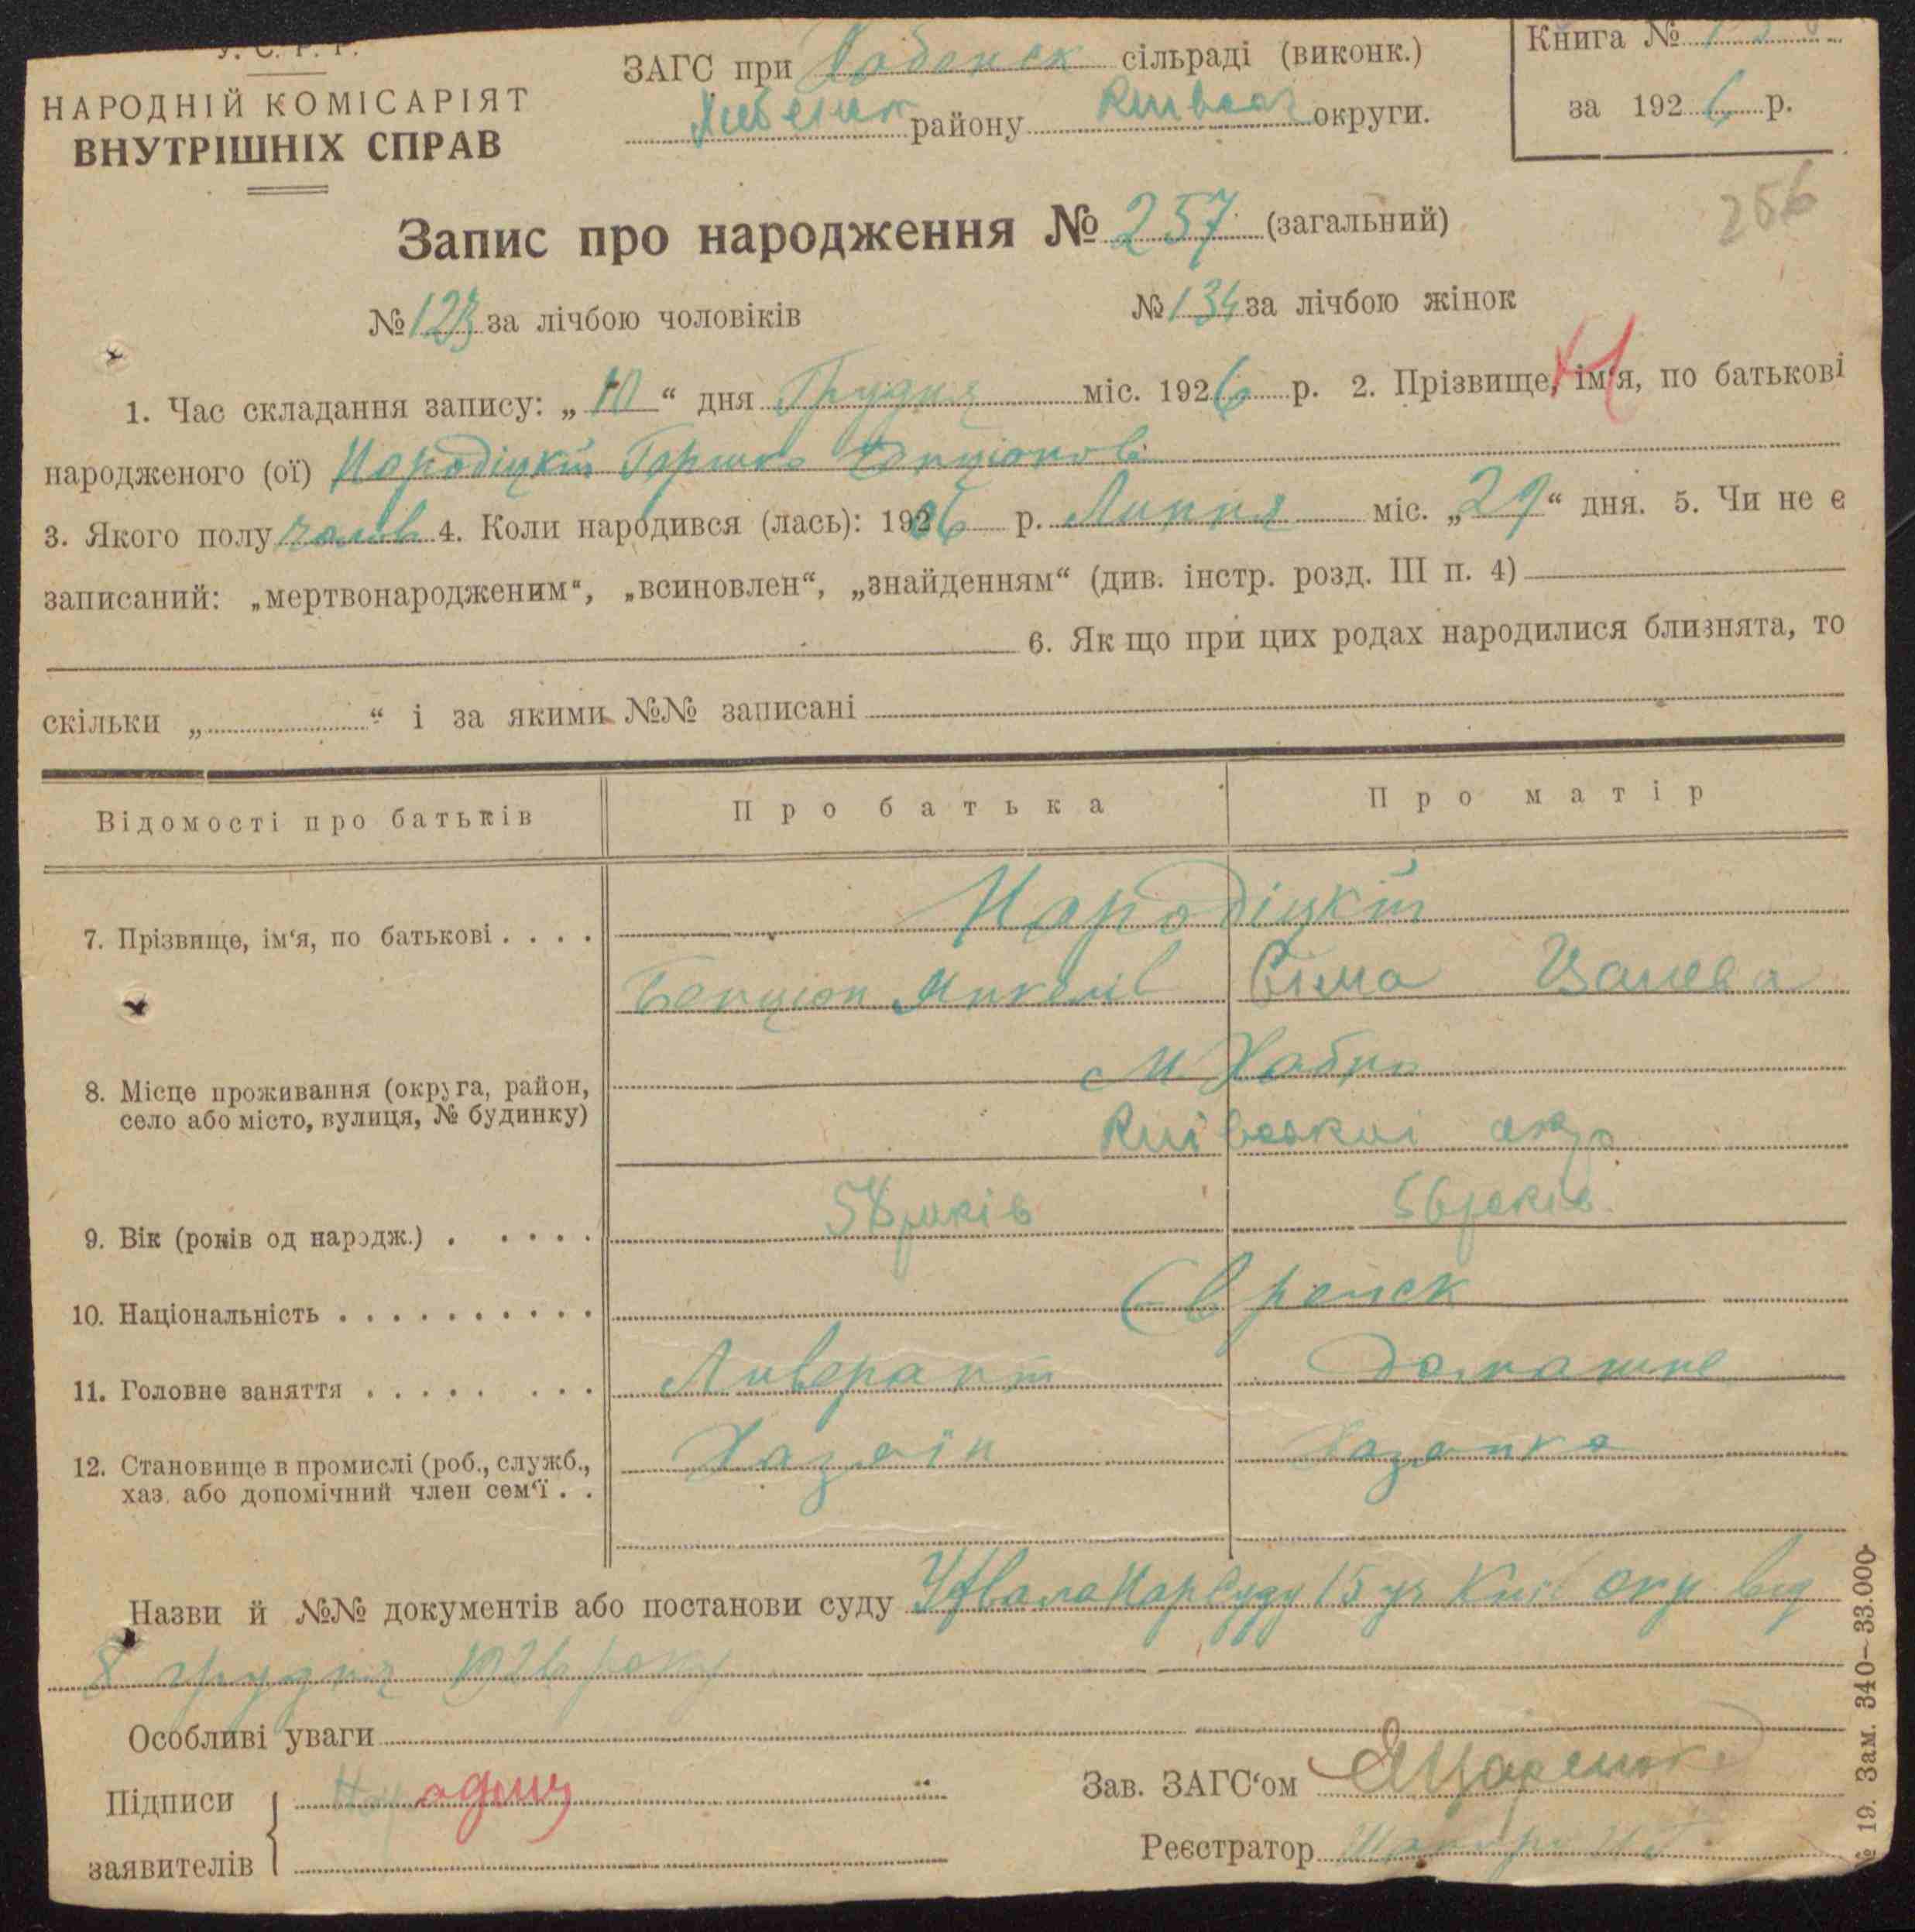 У. С. Р. Р.
НАРОДНІЙ КОМІСАРІЯТ
ВНУТРІШНІХ СПРАВ
ЗАГС при Хабенск сільраді (виконк.)
району округи.
Книга №
за 1926 р.
256
Запис про народження № 257 (загальний)
№ 123 за лічбою чоловіків
№ 134 за лічбою жінок
1. Час складання запису: „10“ дня Грудня міс. 1926 р. 2. Прізвище, ім‘я, по батькові
народженого (ої) Народіцкій Гершко Бенціонов
3. Якого полу чолов 4. Коли народився (лась): 1906 р. Липня міс. „29“ дня. 5. Чи не є
записаний: „мертвонародженим“, „всиновлен“, „знайденням“ (див. інстр. розд. III п. 4)
6. Як що при цих родах народилися близнята, то
скільки „ “ і за якими №№ записані
Відомості про батьків
Про батька
Про матір
7. Прізвище, ім‘я, по батькові . . . .
Народіцкій
Бенціон Сіма
8. Місце проживання (округа, район,
село або місто, вулиця, № будинку)
М Хабно
Київської окр
9. Вік (років од народж.) . . . . .
58 років 56 років
10. Національність . . . . . . . . . .
Єврейск
11. Головне заняття . . . . . . . .
Ливерант Домашне
12. Становище в промислі (роб., служб.,
хаз. або допомічний член сем‘ї . .
Хазяїн Хазяйка
Назви й №№ документів або постанови суду Ухвала Нарсуду 15 уч Київ окр від
8 грудня 1926 року
Особливі уваги
Підписи
заявителів
Зав. ЗАГС‘ом
Реєстратор
№ 19. Зам. 340—33.000